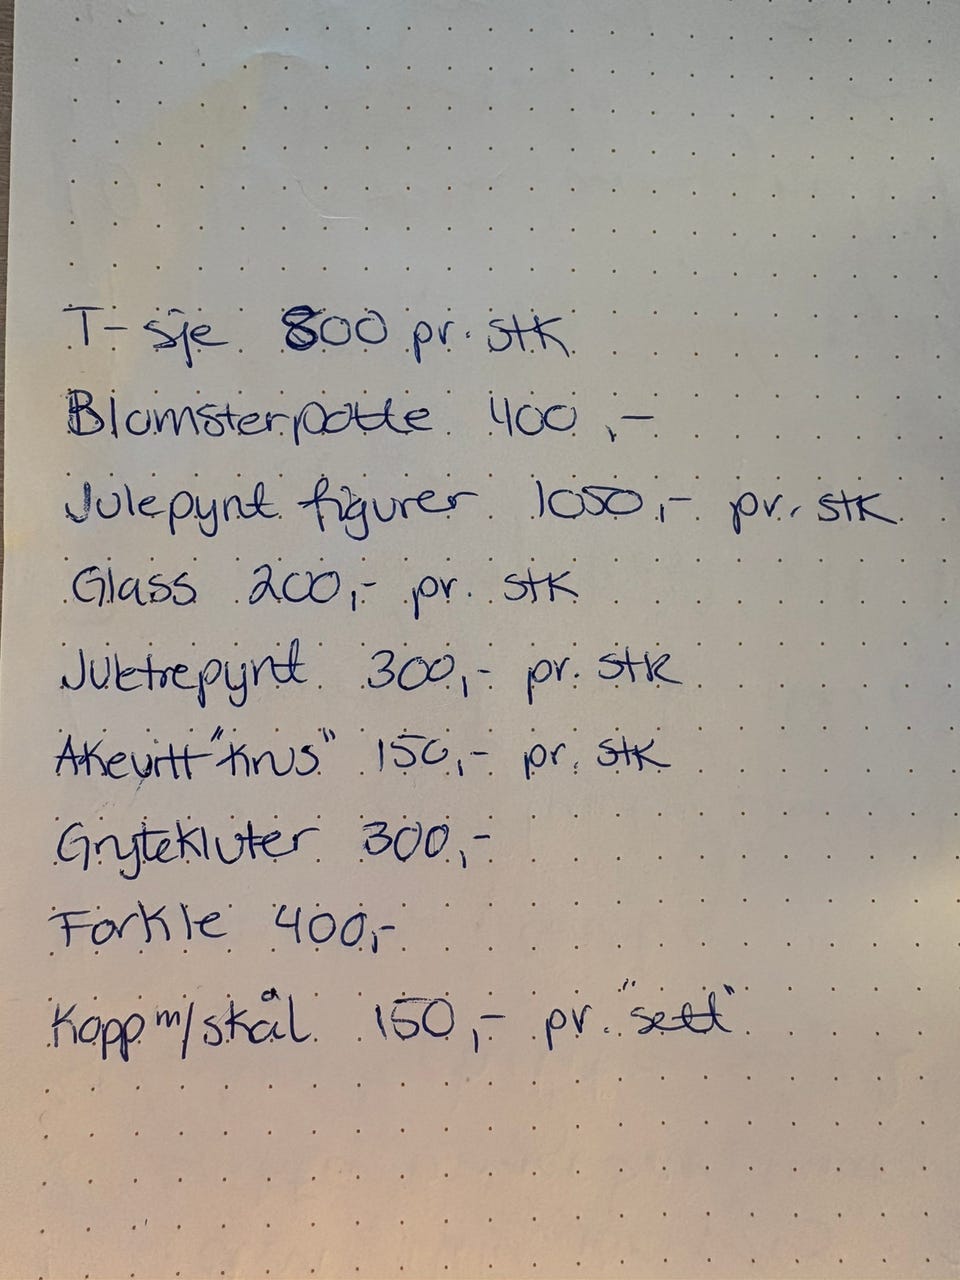 T-sje 800 pr. stk
Blomsterpotte 400,-
Julepynt figurer 1050,- pr. stk
Glass 200,- pr. stk
Juletrepynt 300,- pr. stk
Akevitt "krus" 150,- pr. stk
Grytekluter 300,-
Forkle 400,-
Kopp m/skål 150,- pr. "sett"